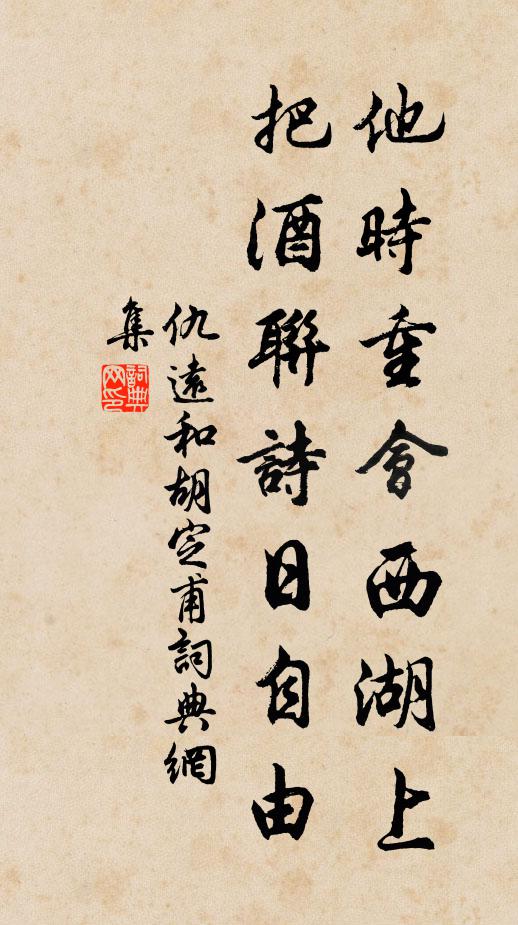 他時重會西湖上
把酒聯詩日自由
仇遠和胡定甫詞典網
集
詞典網印